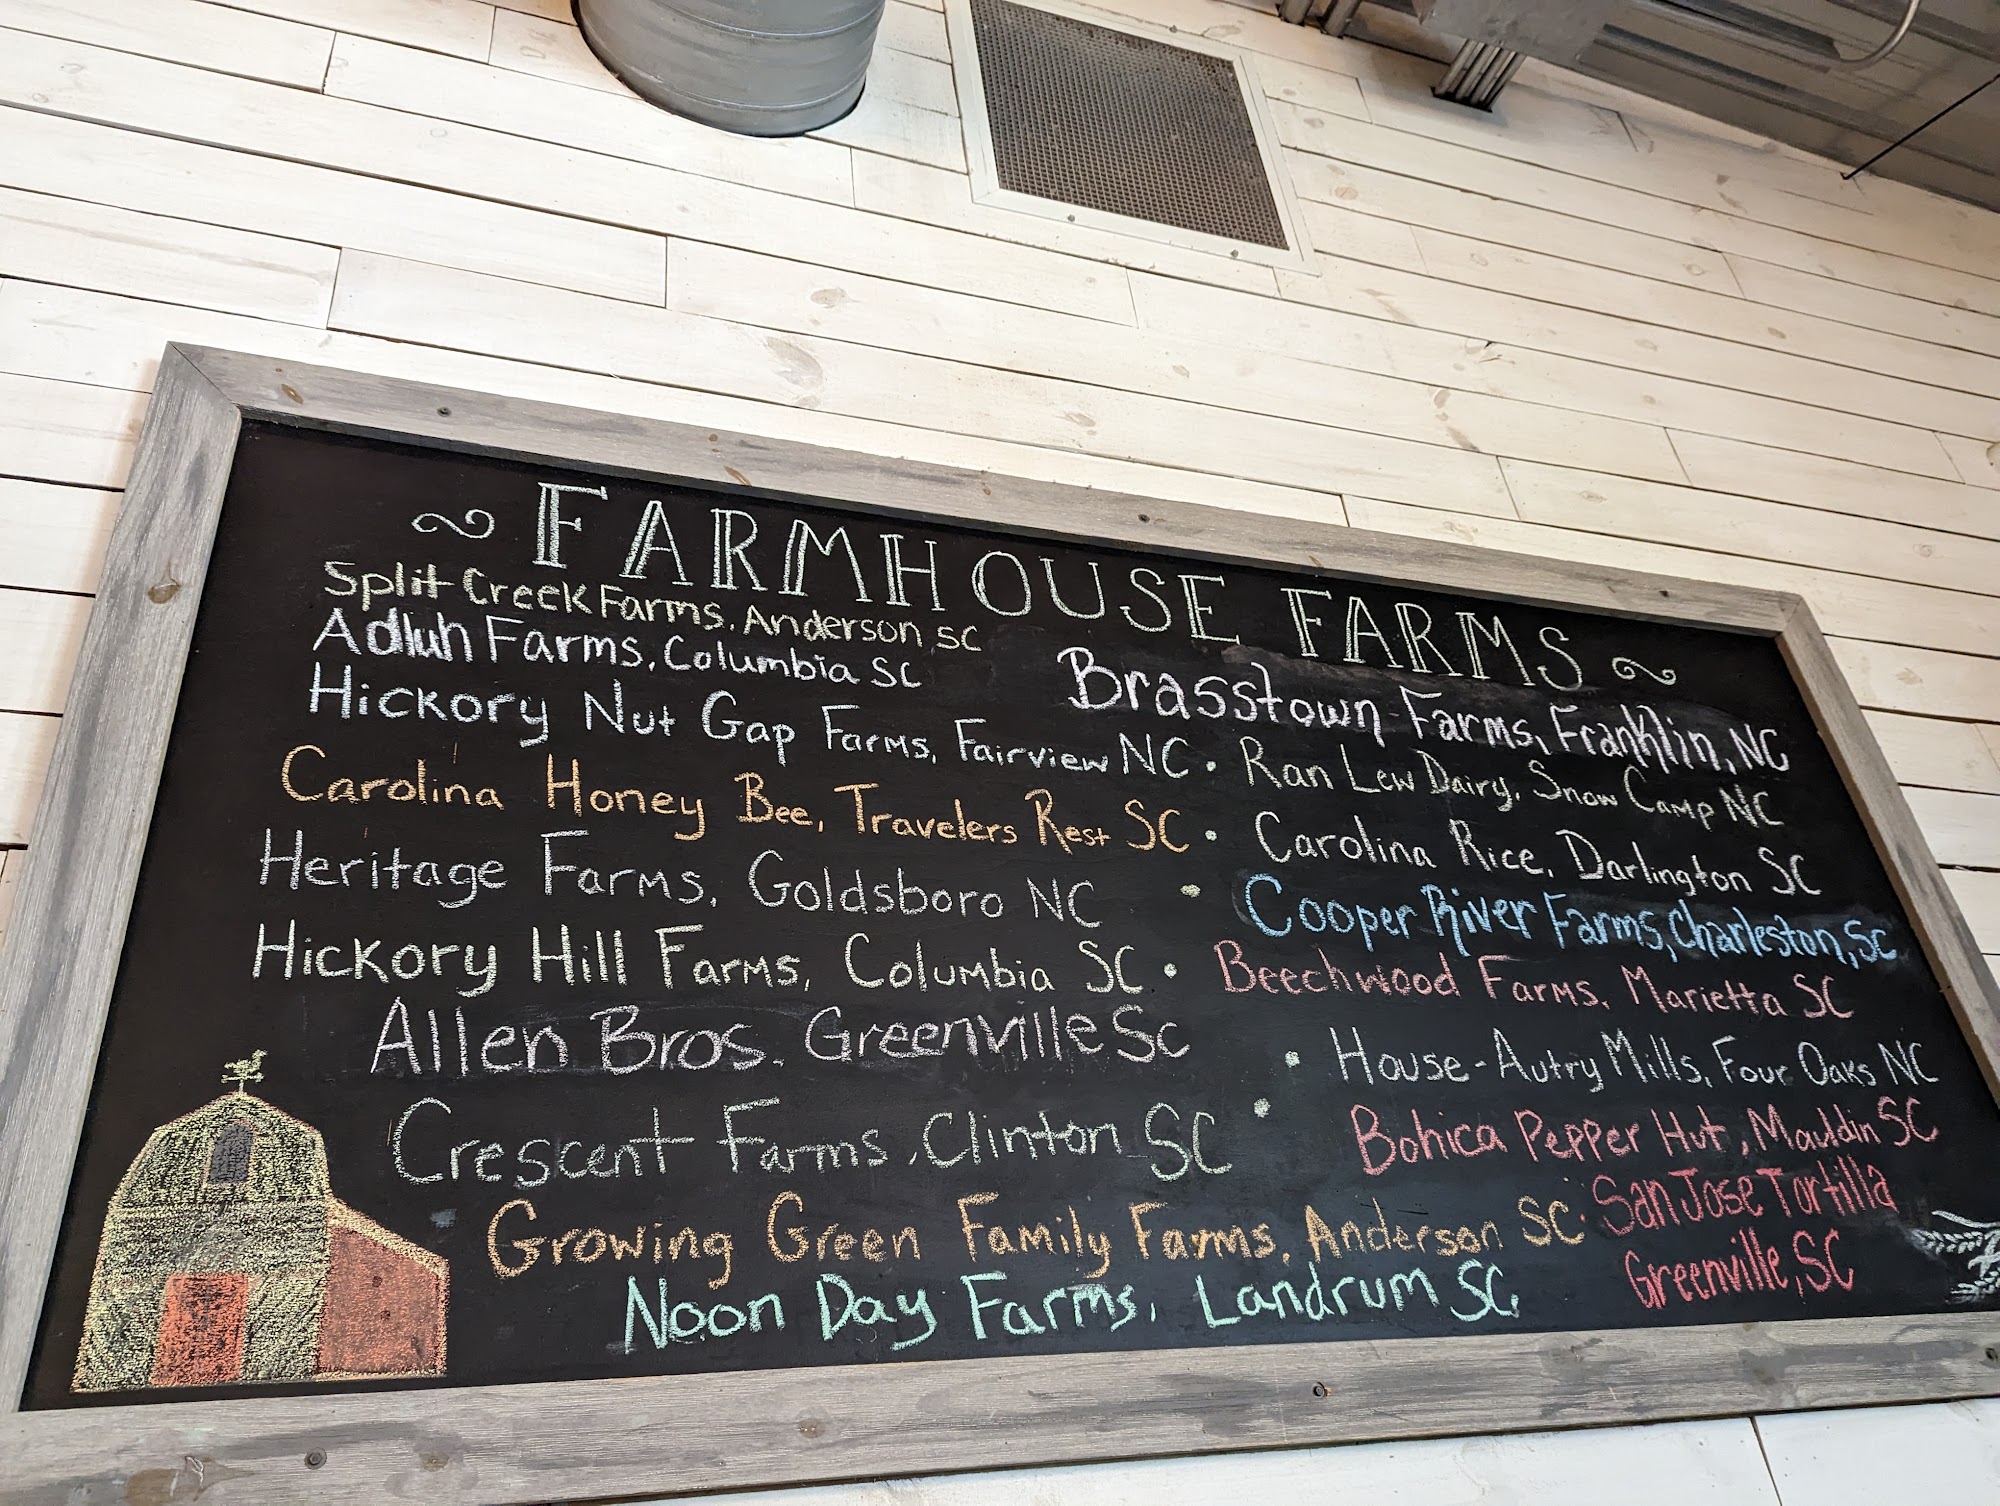 FARMHOUSE FARMS
Split Creek Farms, Anderson, SC
Adluh Farms, Columbia SC
Hickory Nut Gap Farms, Fairview NC
Carolina Honey Bee, Travelers Rest SC
Heritage Farms, Goldsboro NC
Hickory Hill Farms, Columbia SC
Allen Bros. Greenville SC
Crescent Farms, Clinton SC
Growing Green Family Farms, Anderson SC
Noon Day Farms, Landrum SC
Brasstown Farms, Franklin, NC
Ran Lew Dairy, Snow Camp NC
Carolina Rice, Darlington SC
Cooper River Farms, Charleston, SC
Beechwood Farms, Marietta SC
House-Autry Mills, Four Oaks NC
Bohica Pepper Hut, Mauldin SC
San Jose Tortilla
Greenville, SC